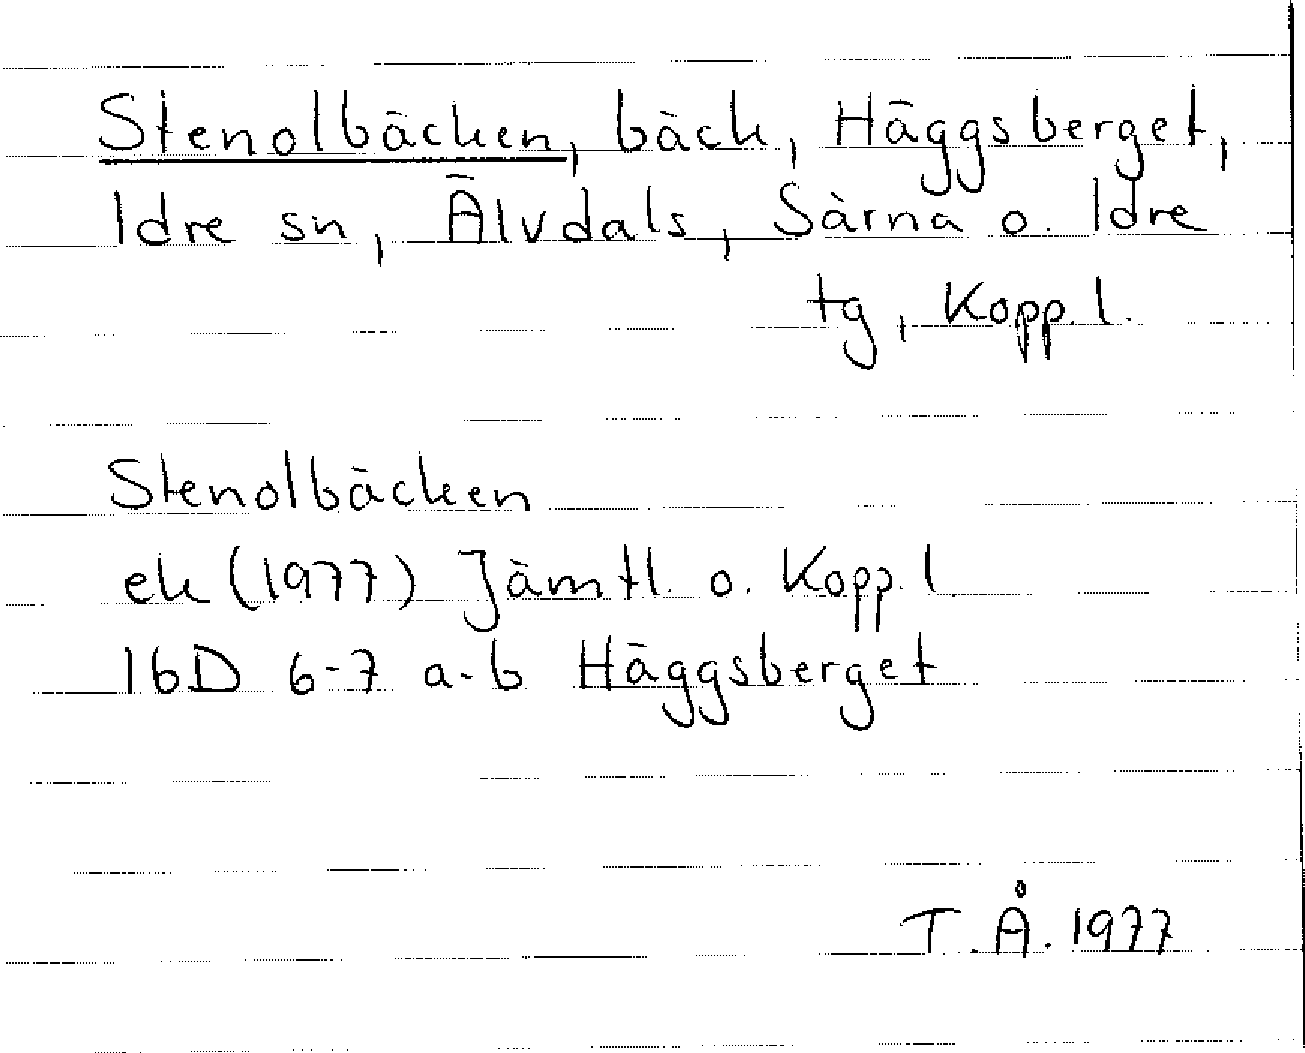 Stenolbäcken, bäck, Häggsberget,
Idre sn, Älvdals, Särna o. Idre
tg, Kopp. l.
Stenolbäcken
ek (1977) Jämtl. o. Kopp. l.
16D 6-7 a-b Häggsberget
T.Å. 1977